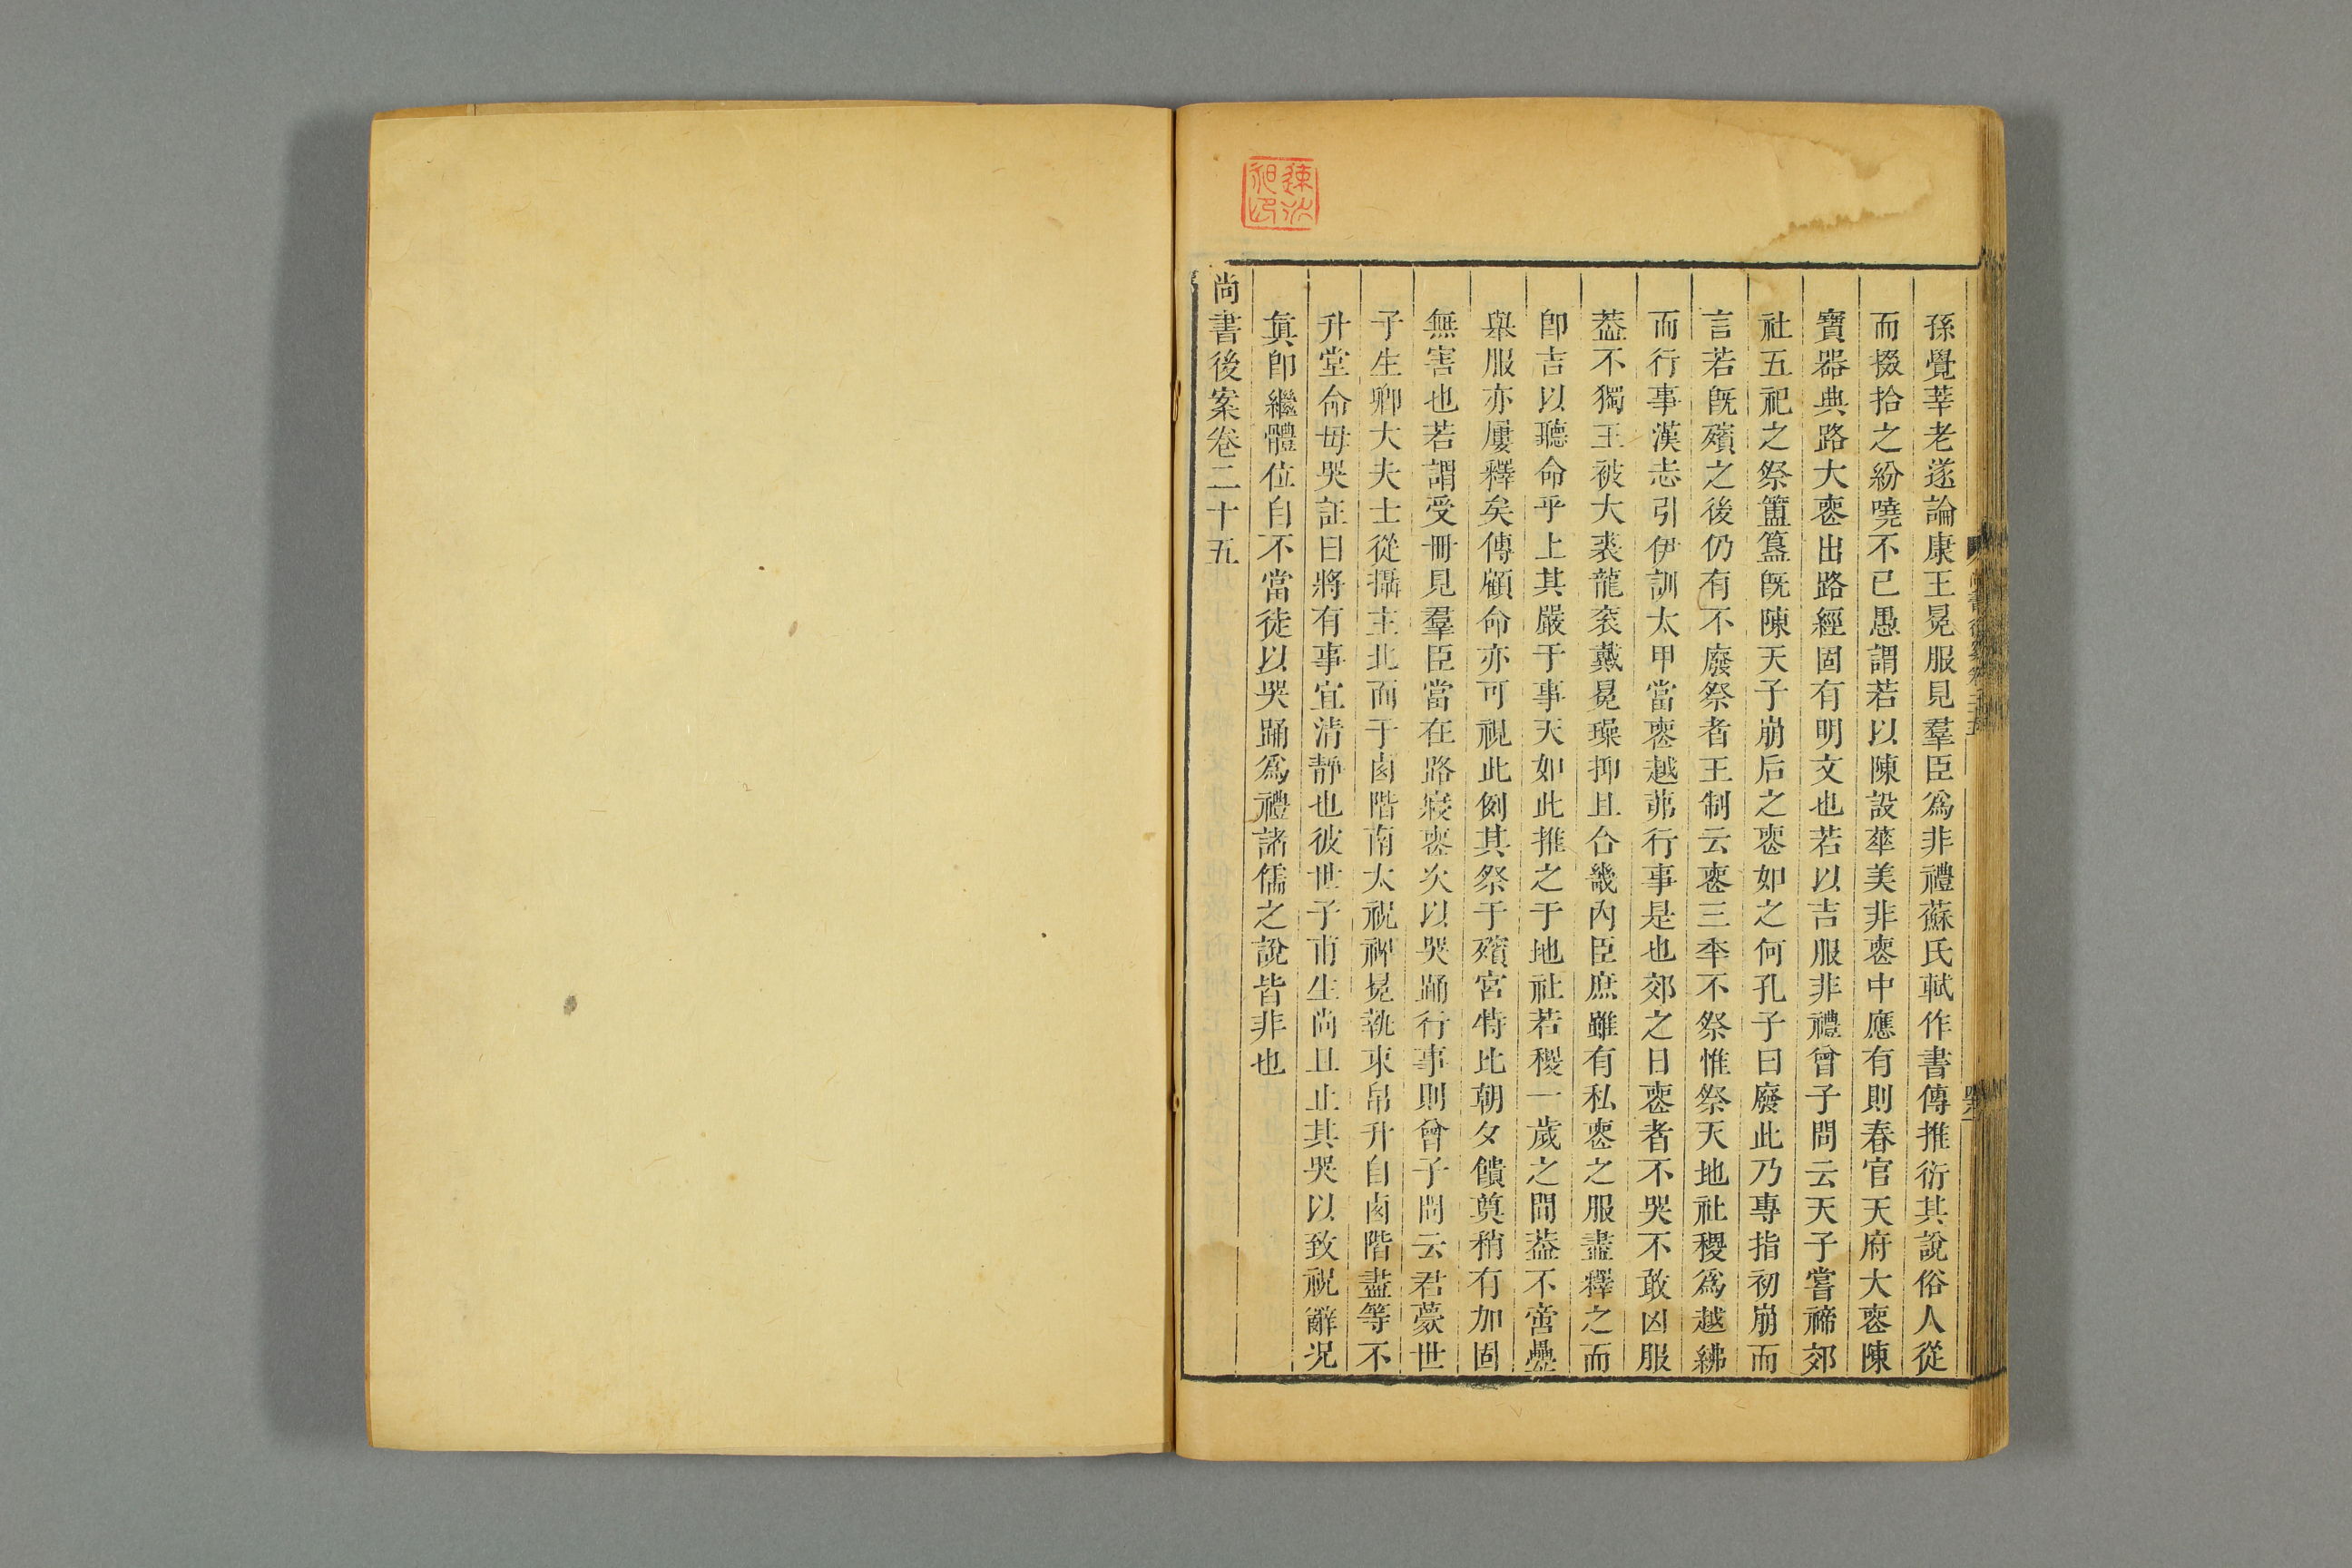 孫覺莘老遂論康王冕服見羣臣爲非禮蘇氏軾作書傳推衍其說俗人從
而掇拾之紛嘵不已愚謂若以陳設華美非喪中應有則春官天府大喪陳
寶器典路大喪出路經固有明文也若以吉服非禮曾子問云天子嘗禘郊
社五祀之祭簠簋旣陳天子崩后之喪如之何孔子曰廢此乃專指初崩而
言若旣殯之後仍有不廢祭者王制云喪三秊不祭惟祭天地社稷爲越紼
而行事漢志引伊訓太甲當喪越茀行事是也郊之日喪者不哭不敢凶服
葢不獨王被大裘龍袞戴冕璪抑且合畿內臣庶雖有私喪之服盡釋之而
卽吉以聽命乎上其嚴于事天如此推之于地社若稷一歲之間葢不啻疊
舉服亦屢釋矣傳顧命亦可視此例其祭于殯宮特比朝夕饋奠稍有加固
無害也若謂受冊見羣臣當在路寢喪次以哭踊行事則曾子問云君薨世
子生卿大夫士從攝主北面于卤階南大祝裨冕執束帛升自卤階盡等不
升堂命毋哭証曰將有事宜清靜也彼世子甫生尚且止其哭以致祝辭况
眞卽繼體位自不當徒以哭踊爲禮諸儒之說皆非也
尚書後案卷二十五